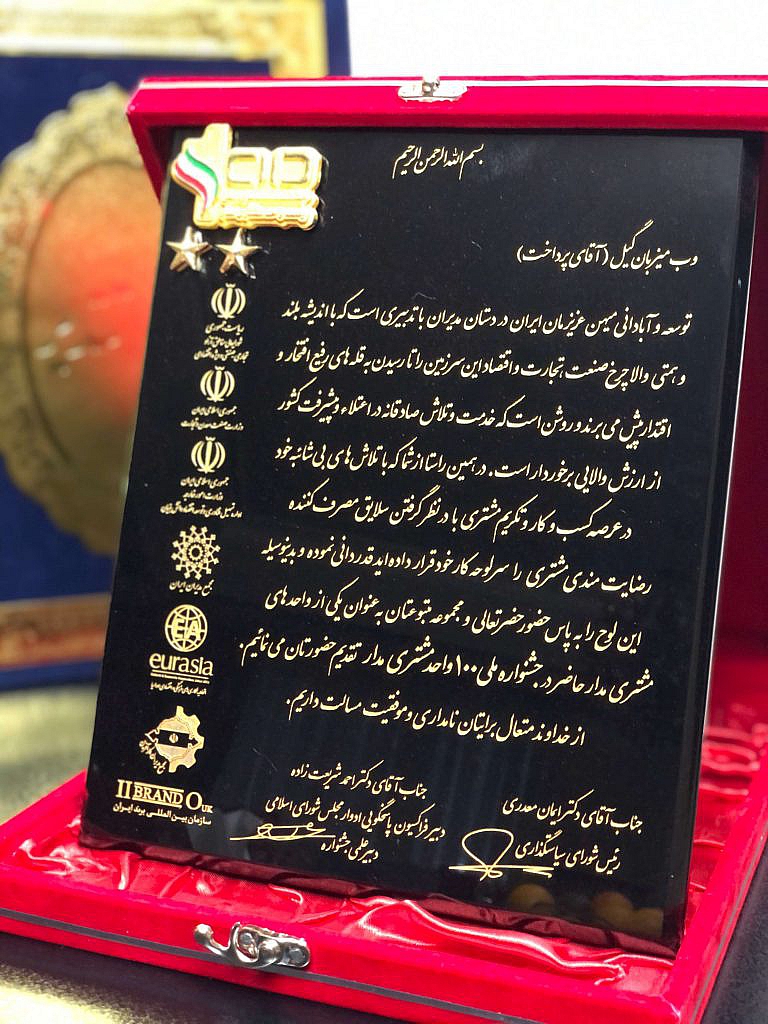 بسم الله الرحمن الرحیم
وب میزبان گیل (آقای پرداخت)
توسعه و آبادانی میهن عزیزمان ایران در دستان مدیران با تدبیری است که با اندیشه بلند
و همتی والا چرخ صنعت، تجارت و اقتصاد این سرزمین را تا رسیدن به قله های رفیع افتخار و
اقتدار پیش می برند و روشن است که خدمت و تلاش صادقانه در اعتلاء و پیشرفت کشور
از ارزش والایی برخوردار است. در همین راستا از شما که با تلاش های بی شائبه خود
در عرصه کسب و کار و تکریم مشتری با در نظر گرفتن سلایق مصرف کننده
رضایت مندی مشتری را سرلوحه کار خود قرار داده اید قدردانی نموده و بدینوسیله
این لوح را به پاس حضور حضرتعالی و مجموعه متبوعتان به عنوان یکی از واحدهای
مشتری مدار حاضر در جشنواره ملی ۱۰۰ واحد مشتری مدار تقدیم حضورتان می نمائیم.
از خداوند متعال برایتان نامداری و موفقیت مسالت داریم.
جناب آقای دکتر ایمان معدری
رئیس شورای سیاستگذاری
جناب آقای دکتر احمد شریعت زاده
دبیر فراکسیون پاسخگویی ادوار مجلس شورای اسلامی
دبیر علمی جشنواره
ریاست جمهوری
جمهوری اسلامی ایران
جمهوری اسلامی ایران
مجمع مدیران ایران
EA
eurasia
II BRAND O UK
سازمان بین المللی برند ایران